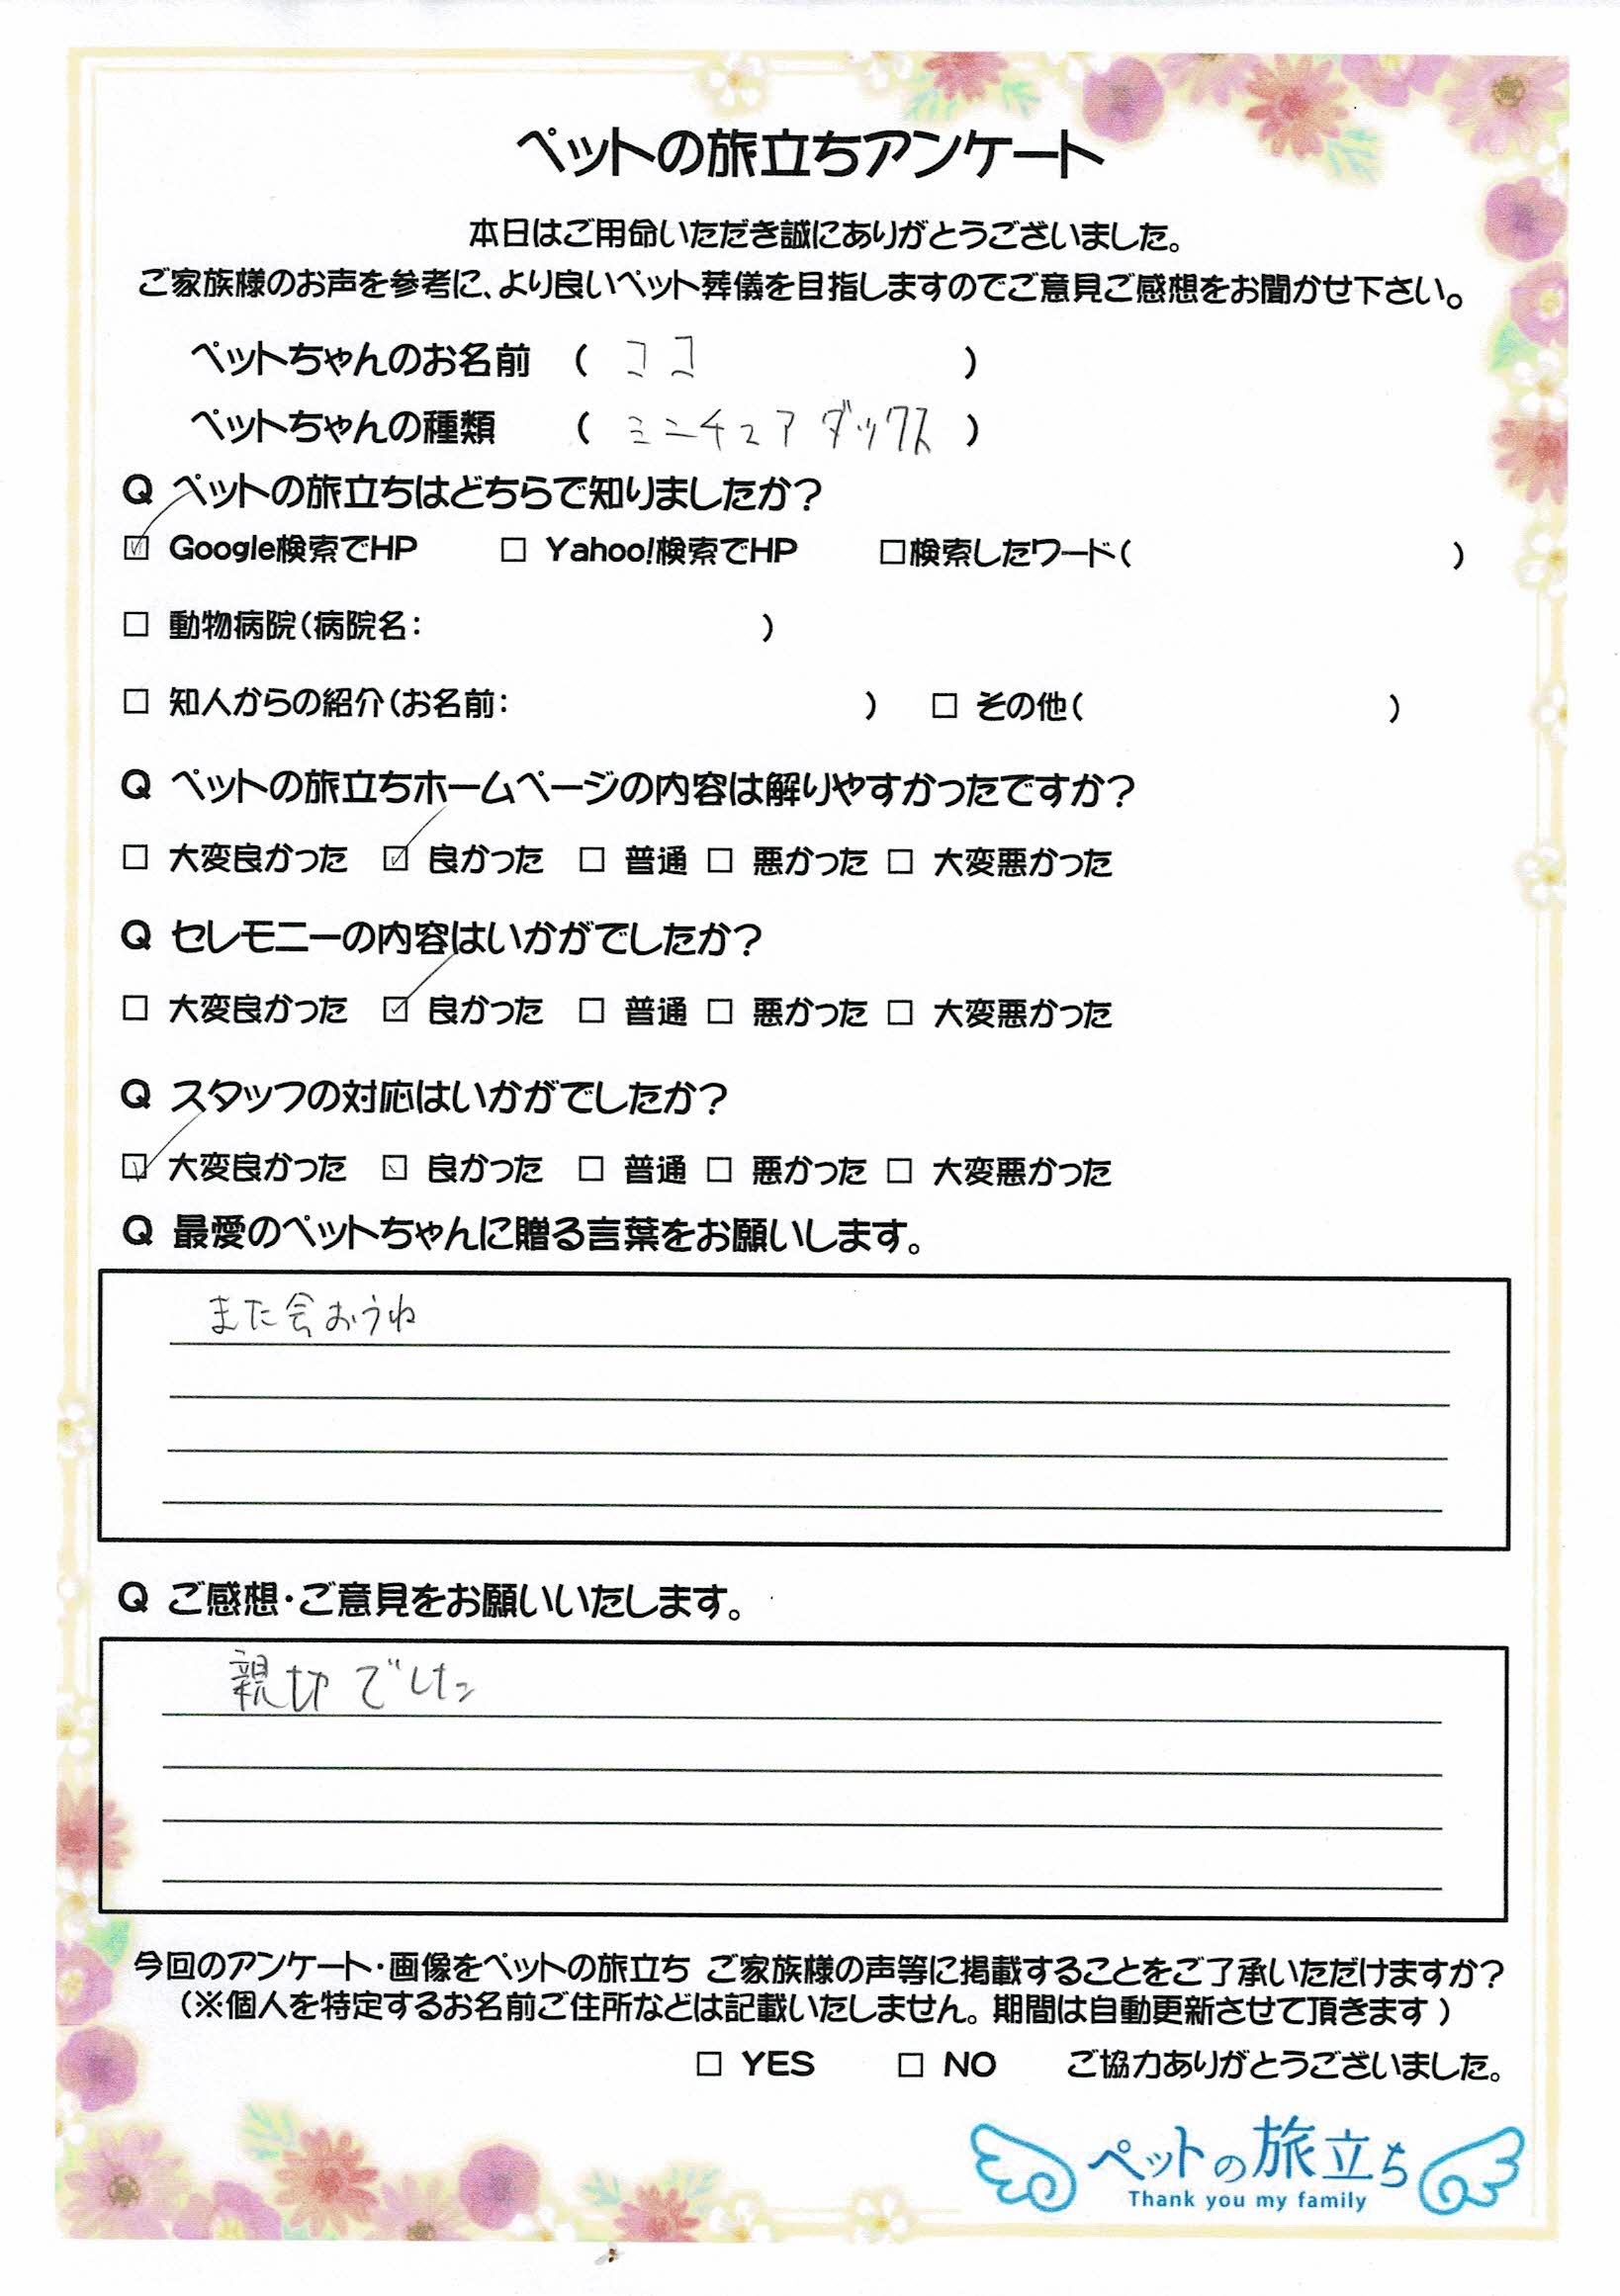 ペットの旅立ちアンケート
本日はご用命いただき誠にありがとうございました。
ご家族様のお声を参考に、より良いペット葬儀を目指しますのでご意見ご感想をお聞かせ下さい。
ペットちゃんのお名前 ( ココ )
ペットちゃんの種類 ( ミニチュアダックス )
Q ペットの旅立ちはどちらで知りましたか?
☑ Google検索でHP □ Yahoo!検索でHP □検索したワード( )
□ 動物病院(病院名: )
□ 知人からの紹介(お名前: ) □ その他( )
Q ペットの旅立ちホームページの内容は解りやすかったですか?
□ 大変良かった ☑ 良かった □ 普通 □ 悪かった □ 大変悪かった
Q セレモニーの内容はいかがでしたか?
□ 大変良かった ☑ 良かった □ 普通 □ 悪かった □ 大変悪かった
Q スタッフの対応はいかがでしたか?
☑ 大変良かった ☑ 良かった □ 普通 □ 悪かった □ 大変悪かった
Q 最愛のペットちゃんに贈る言葉をお願いします。
また会おうね
Q ご感想・ご意見をお願いいたします。
親切でした
今回のアンケート・画像をペットの旅立ち ご家族様の声等に掲載することをご了承いただけますか?
(※個人を特定するお名前ご住所などは記載いたしません。期間は自動更新させて頂きます)
□ YES □ NO ご協力ありがとうございました。
ペットの旅立ち
Thank you my family